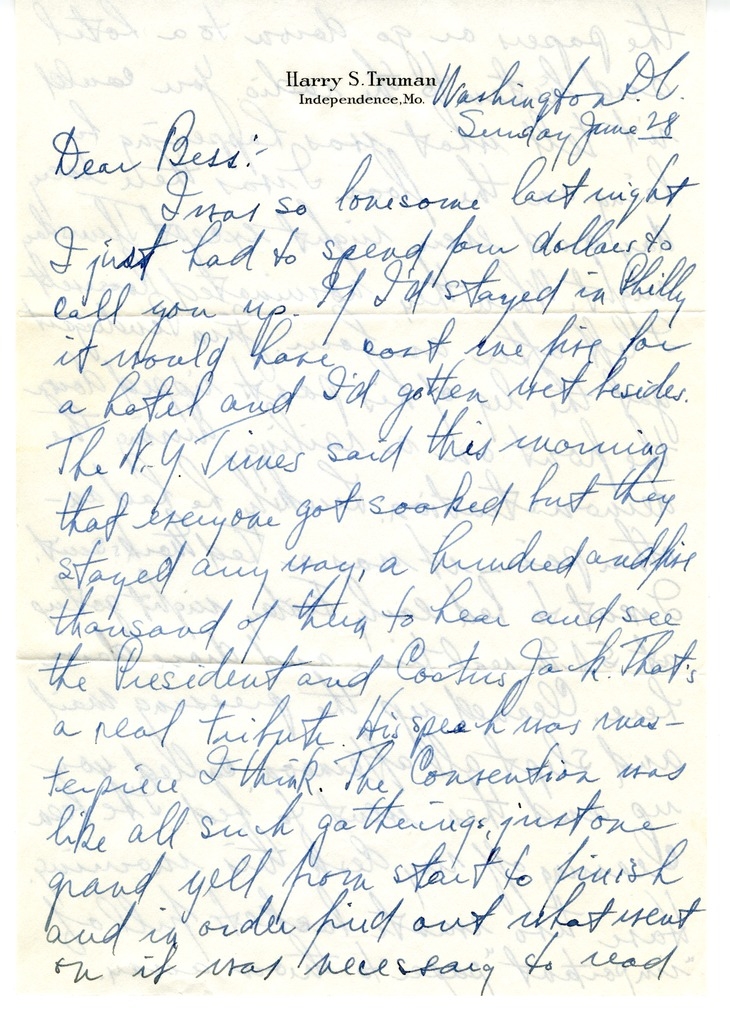 Harry S. Truman
Independence, Mo.
Washington D.C.
Sunday June 28
Dear Bess:-
I was so lonesome last night
I just had to spend four dollars to
call you up. If I'd stayed in Philly
it would have cost me five for
a hotel and I'd gotten wet besides.
The N.Y. Times said this morning
that everyone got soaked but they
stayed any way, a hundred and five
thousand of them to hear and see
the President and Cactus Jack. That's
a real tribute. His speech was mas-
terpiece I think. The Convention was
like all such gatherings, just one
grand yell from start to finish
and in order find out what went
on it was necessary to read